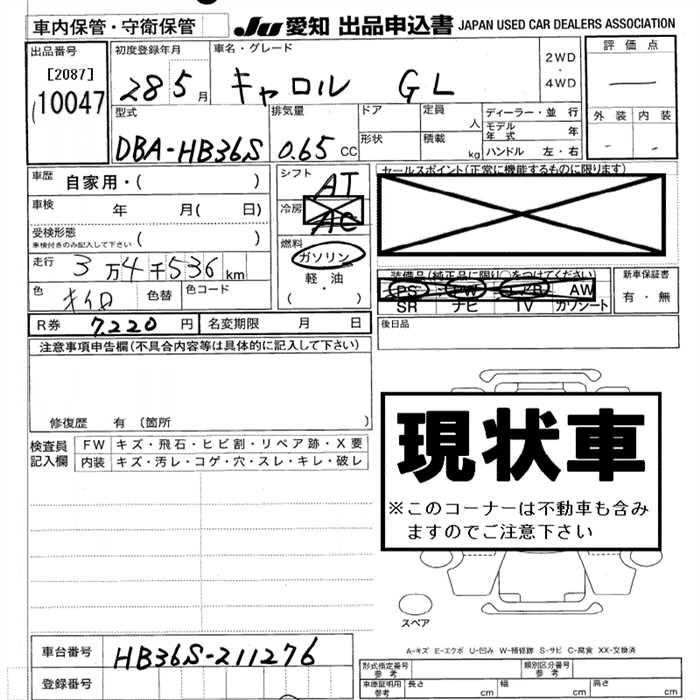 車内保管・守衛保管
JU 愛知 出品申込書 JAPAN USED CAR DEALERS ASSOCIATION
出品番号
[2087]
10047
初度登録年月
28 5 月
車名・グレード
キャロル GL
2WD
・
4WD
評価点
外装 内装
型式
DBA-HB36S
排気量
0.65 CC
ドア
形状
定員
人
積載
kg
ディーラー・並 行
モデル年式 年
ハンドル 左・右
車歴 自家用・( )
車検 年 月( 日)
受検形態
車検付きのみ記入して下さい ( )
走行 3万4千536km
色
色替
色コード
シフト AT
冷房 AC
燃料
ガソリン
軽・油
( )
セールスポイント(正常に機能するものに限ります)
装備品(純正品に限り○をつけてください)
PS PW AW
SR ナビ TV カワシート
新車保証書
有・無
R券 7,220 円
名変期限 月 日
後日品
注意事項申告欄(不具合内容等は具体的に記入して下さい)
修復歴 有(箇所 )
検査員記入欄
FW キズ・飛石・ヒビ割・リペア跡・X要
内装 キズ・汚レ・コゲ・穴・スレ・キレ・破レ
現状車
※このコーナーは不動車も含み
ますのでご注意下さい
スペア
A-キズ E-エクボ U-凹み W-補修跡 S-サビ C-腐食 XX-交換済
車台番号 HB36S-211276
登録番号
形式指定番号 参考
類別区分番号 参考
車庫証明用 参考
長さ cm
幅 cm
高さ cm